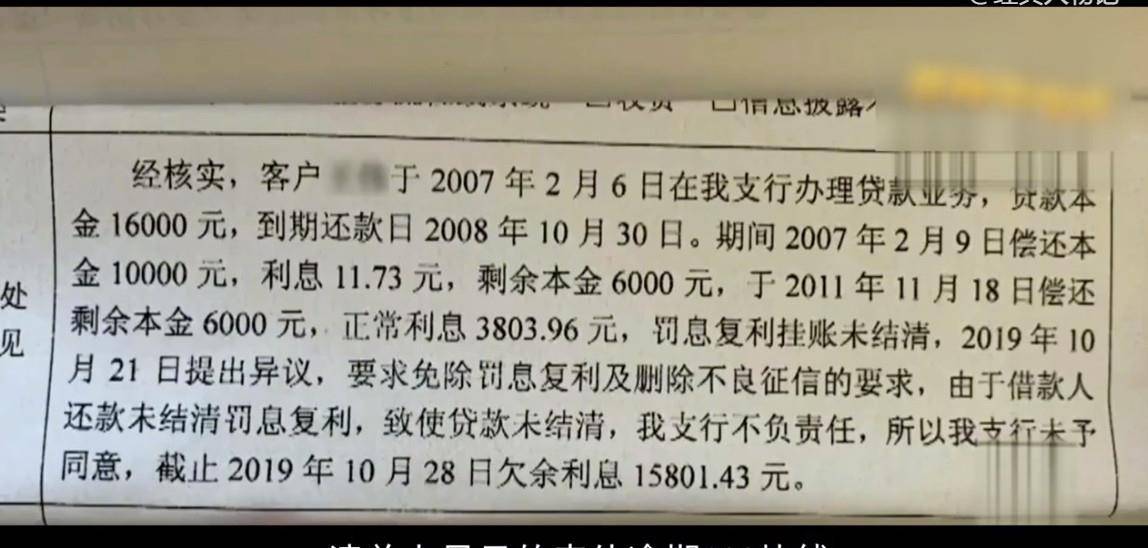 收费 口信息披露
经核实，客户 于 2007 年 2 月 6 日在我支行办理贷款业务，贷款本
金 16000 元，到期还款日 2008 年 10 月 30 日。期间 2007 年 2 月 9 日偿还本
金 10000 元，利息 11.73 元，剩余本金 6000 元，于 2011 年 11 月 18 日偿还
处
剩余本金 6000 元，正常利息 3803.96 元，罚息复利挂账未结清，2019 年 10
见
月 21 日提出异议，要求免除罚息复利及删除不良征信的要求，由于借款人
还款未结清罚息复利，致使贷款未结清，我支行不负责任，所以我支行未予
同意，截止 2019 年 10 月 28 日欠余利息 15801.43 元。